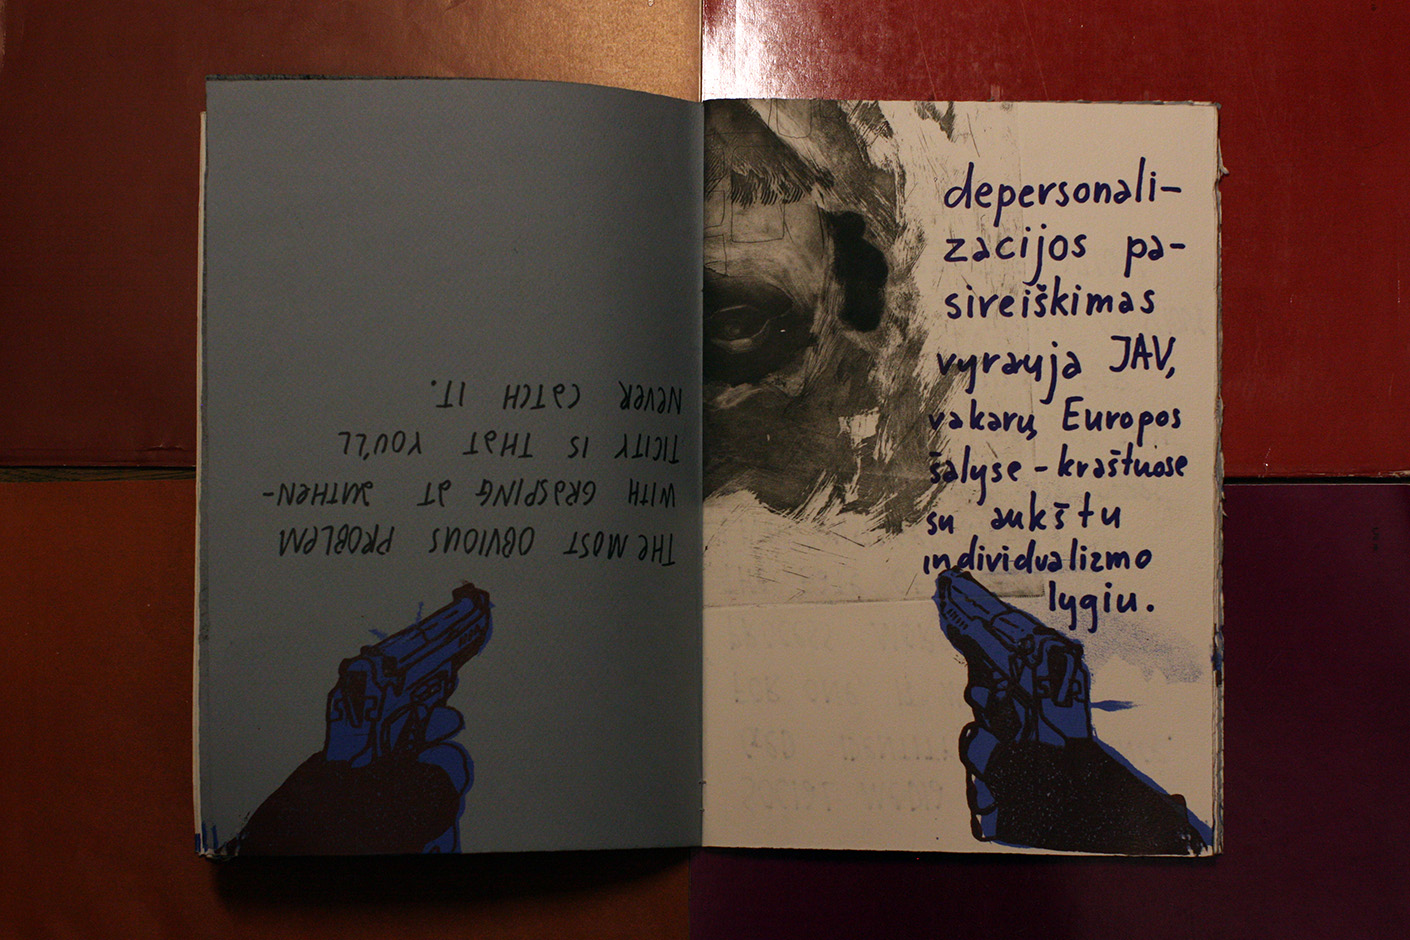 THE MOST OBVIOUS PROBLEM
WITH GRASPING AT AUTHEN-
TICITY IS THAT YOU'LL
NEVER CATCH IT.
depersonali-
zacijos pa-
sireiškimas
vyrauja JAV,
vakarų Europos
šalyse - kraštuose
su aukštu
individualizmo
lygiu.